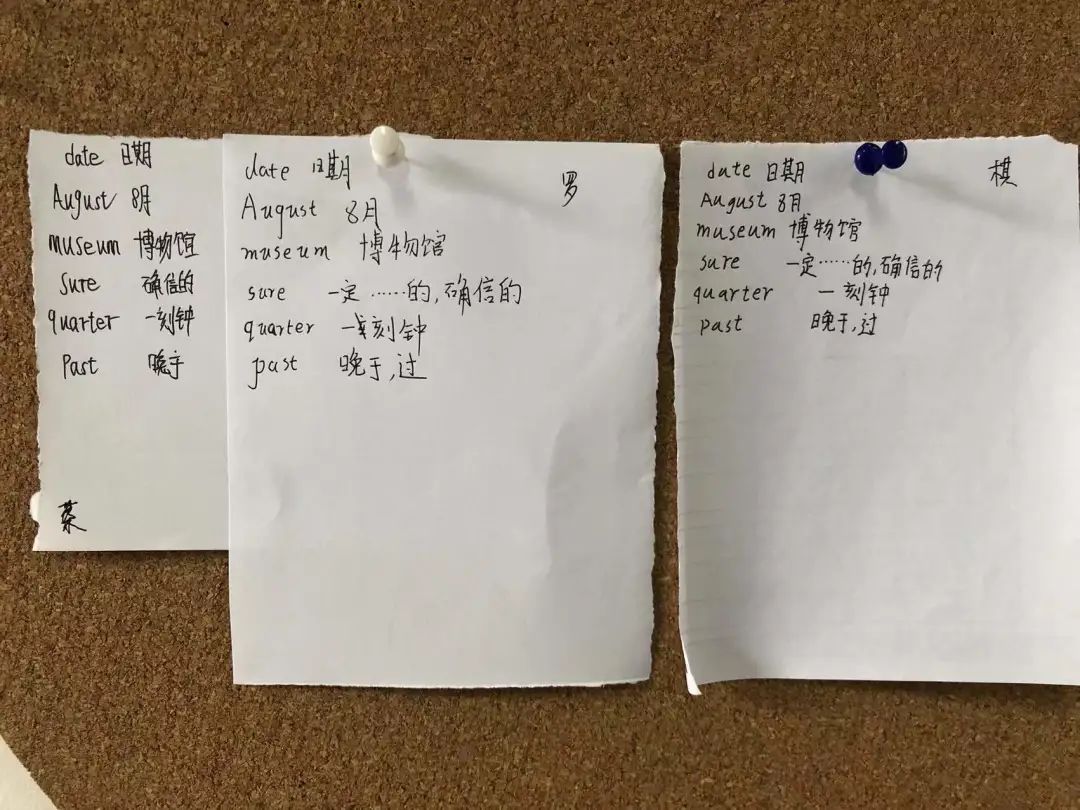 date 日期
August 8月
museum 博物馆
Sure 确信的
quarter 一刻钟
Past 晚于
蔡
date 日期
罗
August 8月
museum 博物馆
sure 一定……的,确信的
quarter 一刻钟
past 晚于,过
date 日期
棋
August 8月
museum 博物馆
sure 一定……的,确信的
quarter 一刻钟
past 晚于,过